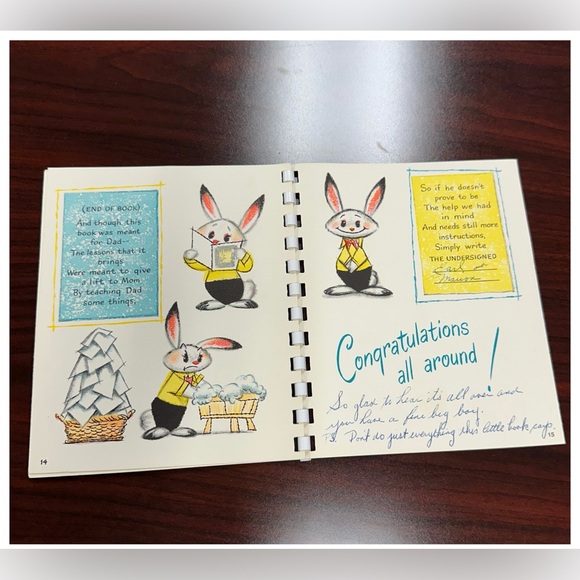 (END OF BOOK)
And though this
book was meant
for Dad—
The lessons that it
brings
Were meant to give
a lift to Mom,
By teaching Dad
some things;
14
So if he doesn't
prove to be
The help we had
in mind
And needs still more
instructions,
Simply write
THE UNDERSIGNED
Earl
Congratulations
all around!
So glad to hear its all over and
you have a fine big boy.
Don't do just everything this little book says.
15